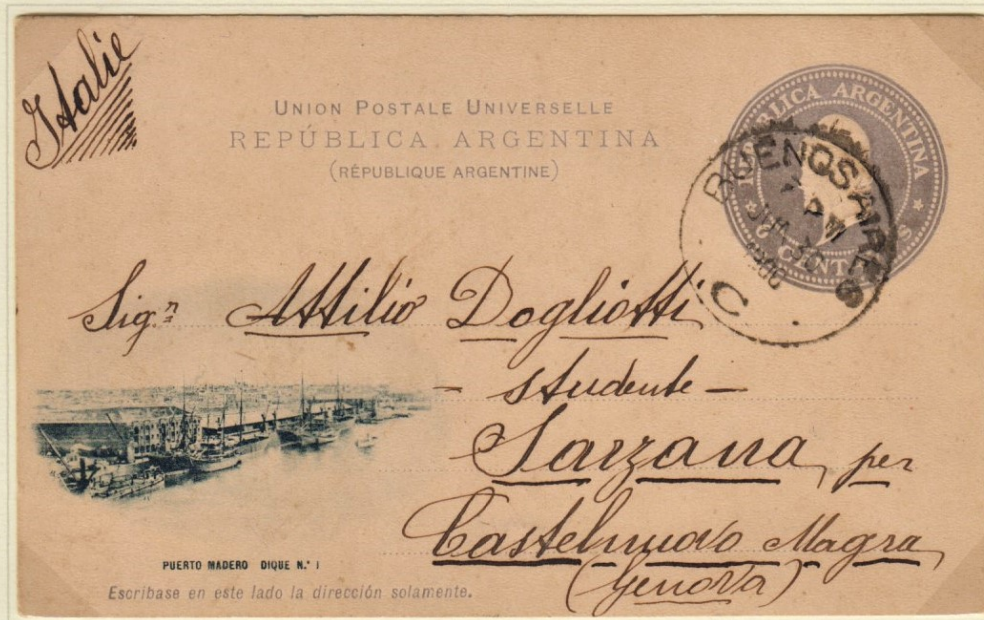 Italie
UNION POSTALE UNIVERSELLE
REPÚBLICA ARGENTINA
(RÉPUBLIQUE ARGENTINE)
REPÚBLICA ARGENTINA
6 CENTAVOS
BUENOS AIRES
7 PM
30
C
Sig.n Attilio Dogliotti
- studente -
Sarzana per
Castelnuovo Magra
(Genova)
PUERTO MADERO DIQUE N.° 1
Escríbase en este lado la dirección solamente.